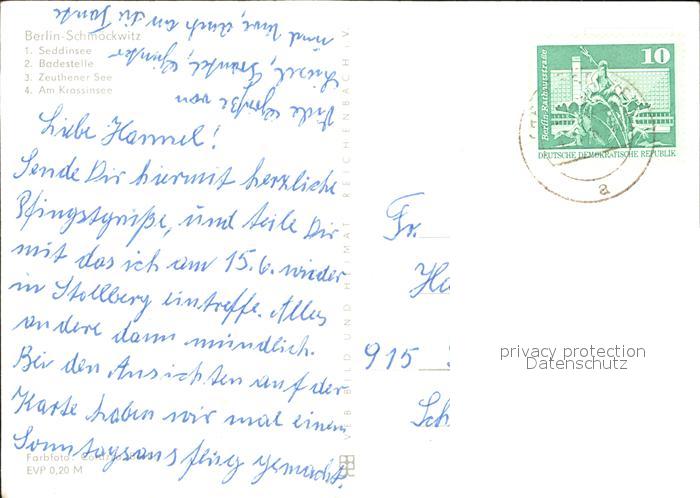 Berlin-Schmöckwitz
1. Seddinsee
2. Badestelle
3. Zeuthener See
4. Am Krossinsee
Liebe Hannel!
Sende Dir hiermit herzliche
Pfingstgrüße, und teile Dir
mit das ich am 15.6. wieder
in Stollberg eintreffe. Alles
andere dann mündlich.
Bei den Ansichten auf der
Karte haben wir mal einen
Sonntagsausflug gemacht.
Viele Grüße von
und
auch an die Tante
Farbfoto:
EVP 0,20 M
VEB BILD UND HEIMAT REICHENBACH i.V.
10
Berlin-Rathausstraße
DEUTSCHE DEMOKRATISCHE REPUBLIK
a
Fr.
Ha
915
Sch
privacy protection
Datenschutz